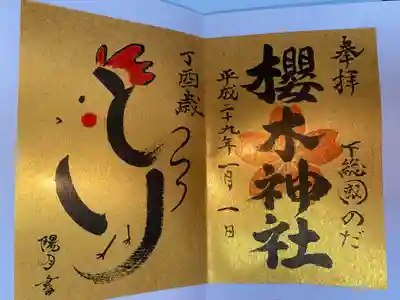 奉拝
下総國のだ
櫻木神社
平成二十九年一月一日
丁酉歳
とり